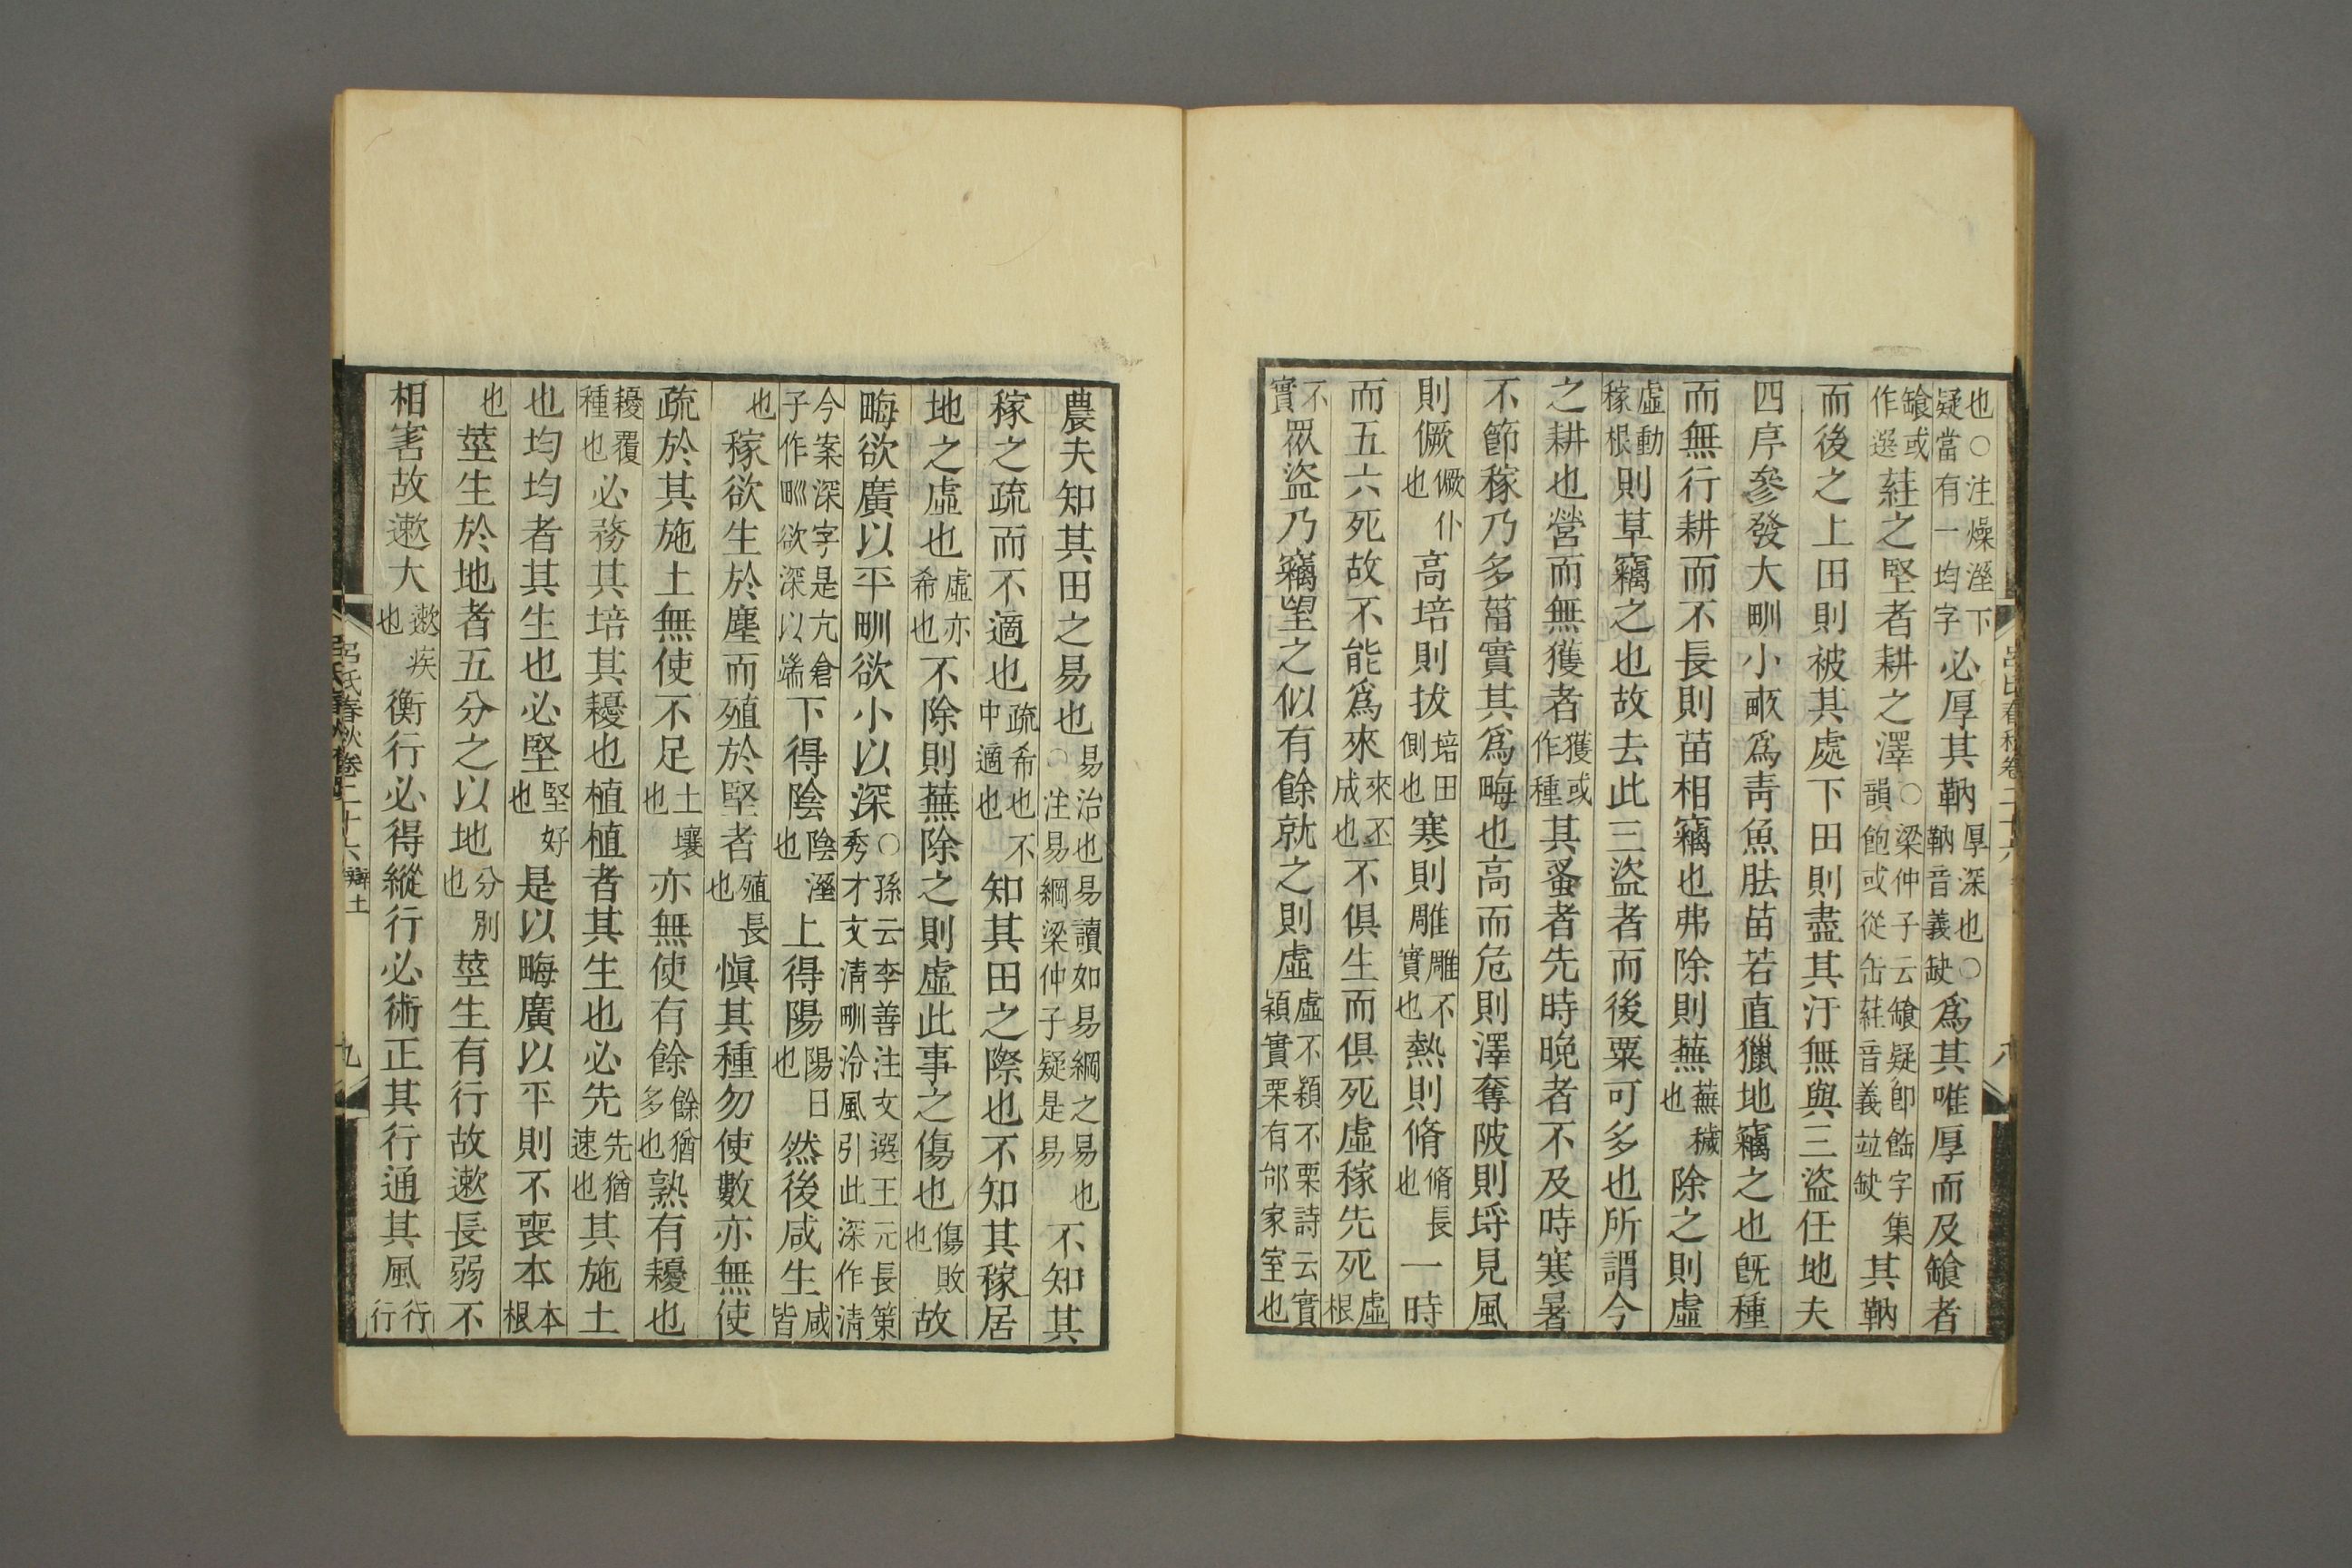 也○注燥溼下疑當有一均字必厚其靹厚深也○靹音義缺爲其唯厚而及䭃者
䭃或作選𦯔之堅者耕之澤○梁仲子云䭃疑卽䬰字集韻飽或從缶𦯔音義竝缺其靹
而後之上田則被其處下田則盡其汙無與三盜任地夫
四序參發大甽小畝爲靑魚胠苗若直獵地竊之也旣種
而無行耕而不長則苗相竊也弗除則蕪蕪穢也除之則虛
虛動稼根則草竊之也故去此三盜者而後粟可多也所謂今
之耕也營而無獲者獲或作種其蚤者先時晚者不及時寒暑
不節稼乃多葘實其爲畮也高而危則澤奪陂則埒見風
則僛僛仆也高培則拔培田側也寒則雕雕不實也熱則脩脩長也一時
而五六死故不能爲來來丕成也不俱生而俱死虛稼先死虛根
不實眾盜乃竊望之似有餘就之則虛虛不穎不栗詩云實穎實栗有邰家室也
呂氏春秋卷二十六 八
農夫知其田之易也易治也易讀如易綱之易也○注易綱梁仲子疑是易不知其
稼之疏而不適也疏希也不中適也知其田之際也不知其稼居
地之虛也虛亦希也不除則蕪除之則虛此事之傷也傷敗也故
畮欲廣以平甽欲小以深○孫云李善注文選王元長策秀才文清甽泠風引此深作清
今案深字是亢倉子作甽欲深以端下得陰陰溼也上得陽陽日也然後咸生咸皆
也稼欲生於塵而殖於堅者殖長也愼其種勿使數亦無使
疏於其施土無使不足土壤也亦無使有餘餘猶多也熟有耰也
耰覆種也必務其培其耰也植植者其生也必先先猶速也其施土
也均均者其生也必堅堅好也是以畮廣以平則不喪本本根
也莖生於地者五分之以地分別也莖生有行故遬長弱不
相害故遬大遬疾也衡行必得縱行必術正其行通其風行行
呂氏春秋卷二十六 辯土 九